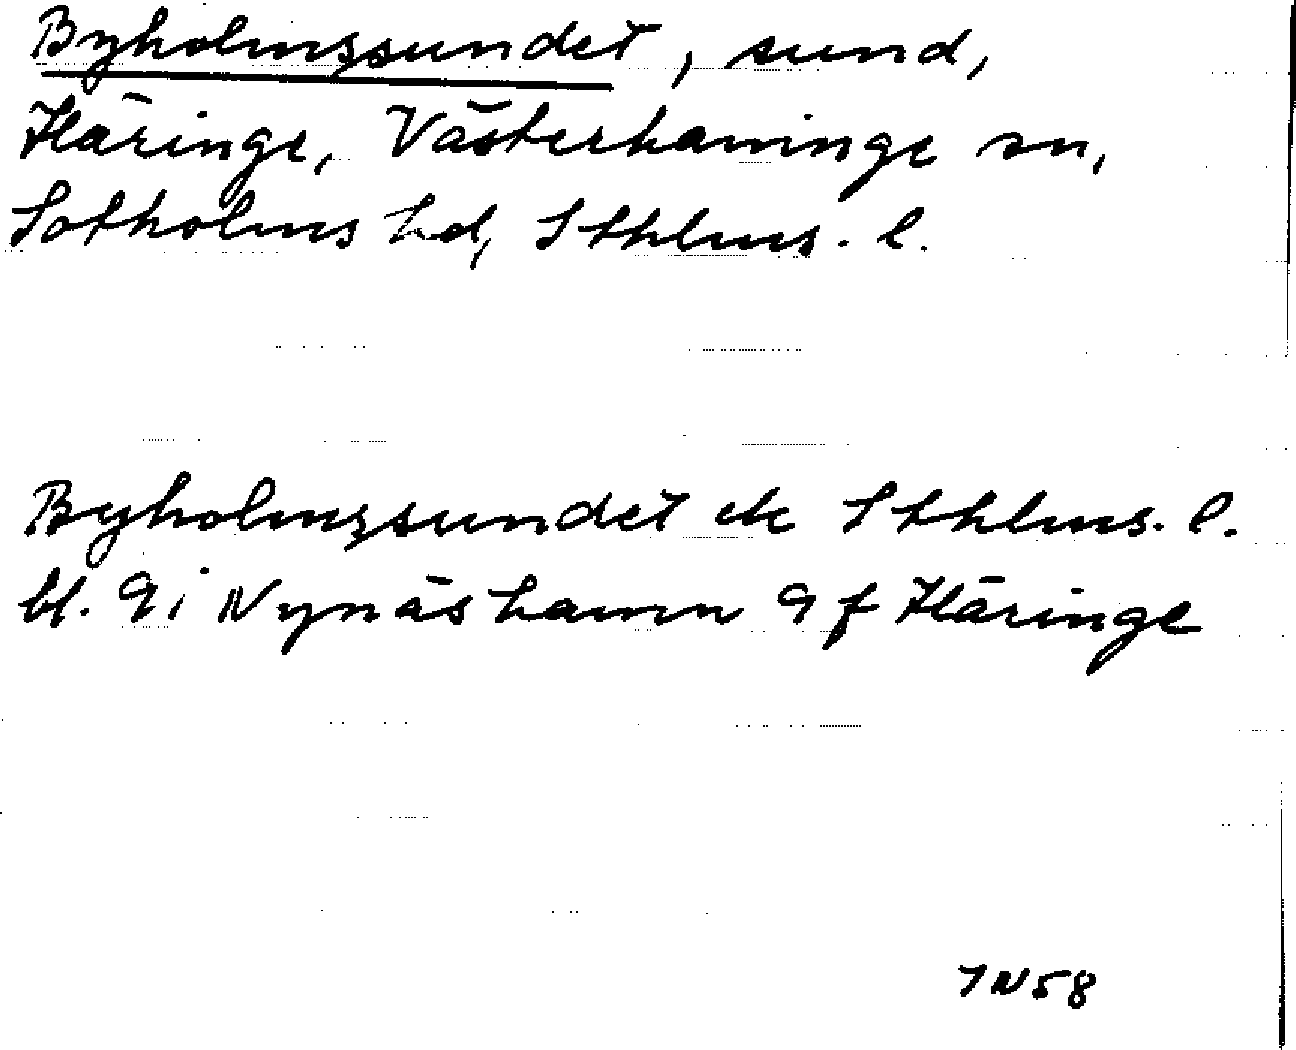 Byholmssundet, sund,
Häringe, Västerhaninge sn,
Sotholms hd, Sthlms. l.
Byholmssundet ek Sthlms. l.
bl. 9i Nynäshamn 9f Häringe
7N58